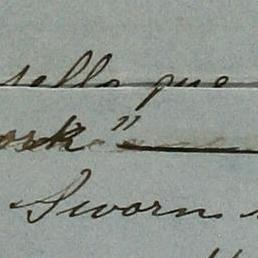 sello que
ork"
Sworn